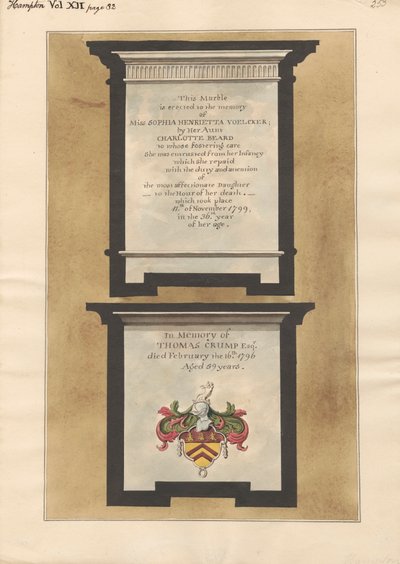 Hampton Vol XII page 82
253
This Marble
is erected to the memory
of
Miss SOPHIA HENRIETTA VOELCKER;
by Her Aunt
CHARLOTTE BEARD
to whose fostering care
She was entrusted from her Infancy
which She repaid
with the duty and attention
of
the most affectionate Daughter
— to the Hour of her death. —
which took place
11th of November 1799,
in the 36th year
of her age.
In Memory of
THOMAS CRUMP Esqr.
died February the 16th 1796
Aged 59 years.